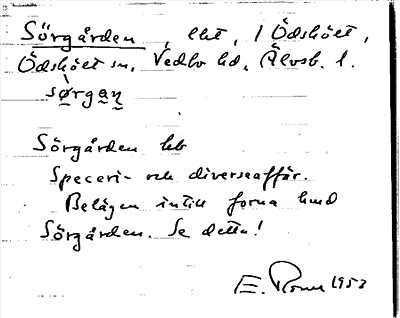 Sörgården, lht, i Ödskölt,
Ödskölt sn, Vedbo hd, Älvsb. l.
sørgan
Sörgården hb
Speceri- och diverseaffär.
Belägen intill forna hmd
Sörgården. Se detta!
E. 1953